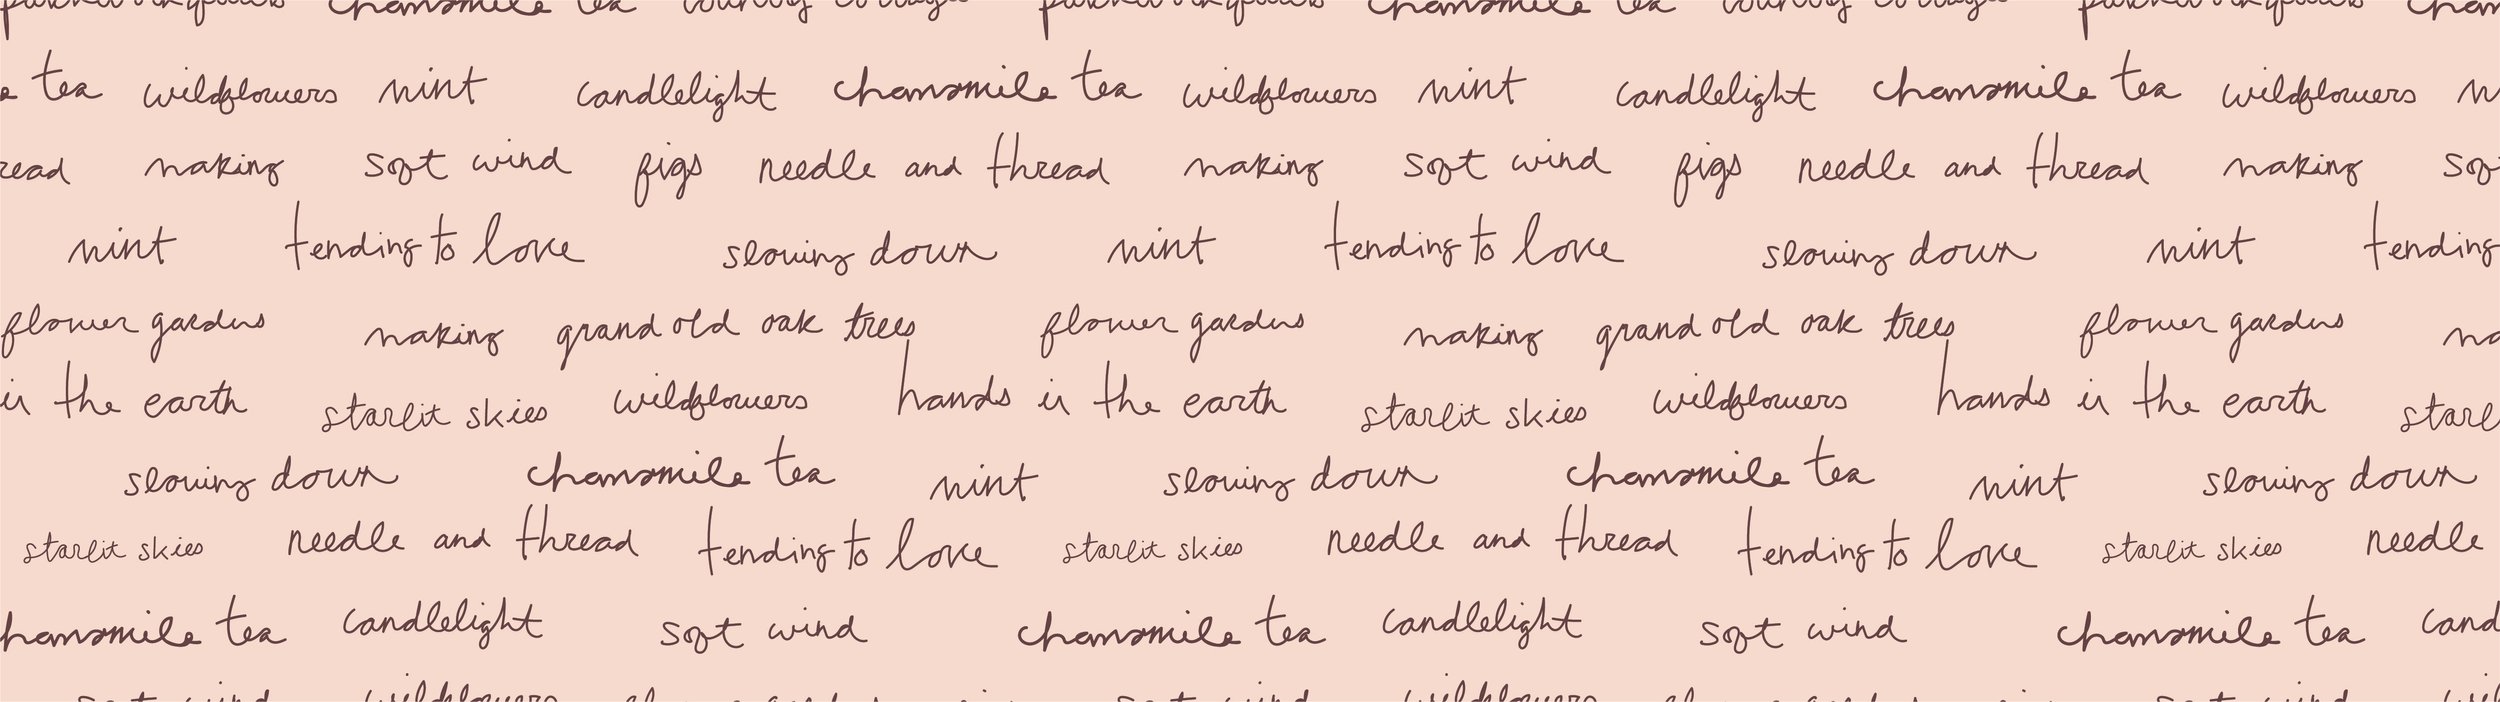 chamomile tea chamomile tea
tea wildflowers mint candlelight chamomile tea wildflowers mint candlelight chamomile tea wildflowers
making soft wind figs needle and thread making soft wind figs needle and thread making
mint tending to love slowing down mint tending to love slowing down mint tending
flower gardens making grand old oak trees flower gardens making grand old oak trees flower gardens
in the earth starlit skies wildflowers hands in the earth starlit skies wildflowers hands in the earth
slowing down chamomile tea mint slowing down chamomile tea mint slowing down
starlit skies needle and thread tending to love starlit skies needle and thread tending to love starlit skies needle
tea candlelight soft wind chamomile tea candlelight soft wind chamomile tea